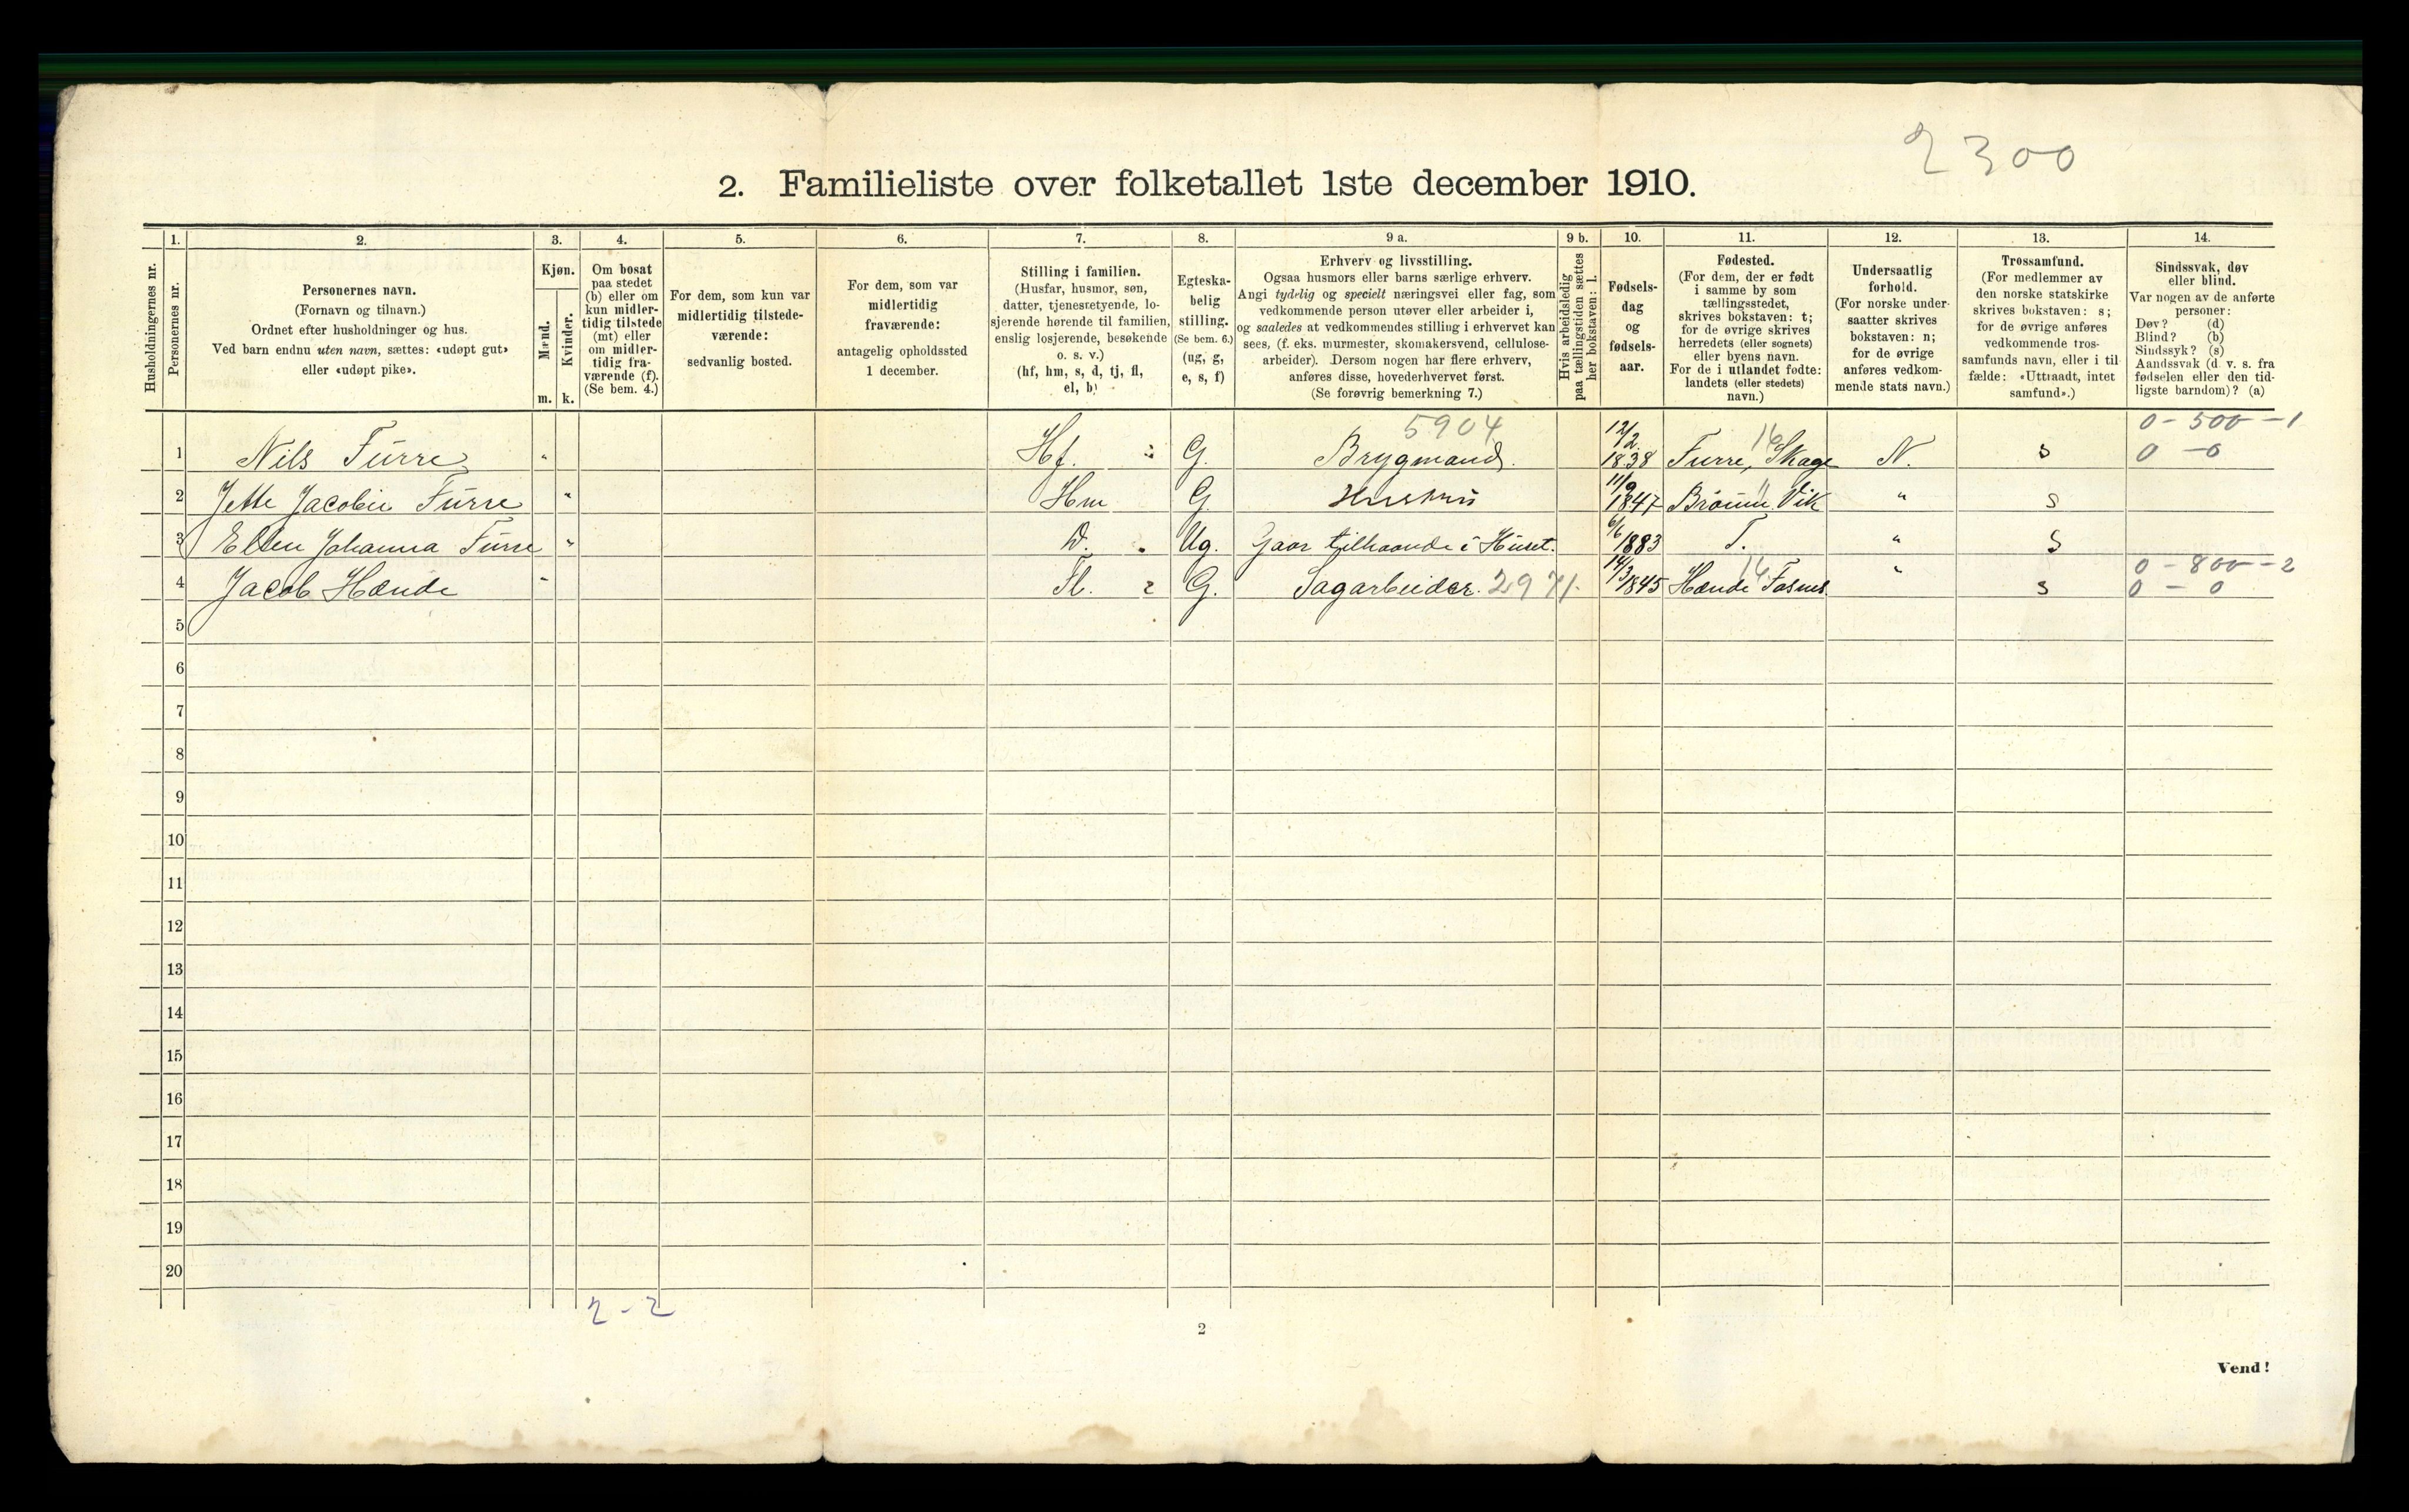 2300
2. Familieliste over folketallet 1ste december 1910.
1. 2. 3. 4. 5. 6. 7. 8. 9 a. 9 b. 10. 11. 12. 13. 14.
Husholdningernes nr.
Personernes nr.
Personernes navn.
(Fornavn og tilnavn.)
Ordnet efter husholdninger og hus.
Ved barn endnu uten navn, sættes: «udøpt gut»
eller «udøpt pike».
Kjøn.
Mænd.
Kvinder.
m. k.
Om bosat
paa stedet
(b) eller om
kun midler-
tidig tilstede
(mt) eller
om midler-
tidig fra-
værende (f).
(Se bem. 4.)
For dem, som kun var
midlertidig tilstede-
værende:
sedvanlig bosted.
For dem, som var
midlertidig
fraværende:
antagelig opholdssted
1 december.
Stilling i familien.
(Husfar, husmor, søn,
datter, tjenestetyende, lo-
sjerende hørende til familien,
enslig losjerende, besøkende
o. s. v.)
(hf, hm, s, d, tj, fl,
el, b)
Egteska-
belig
stilling.
(Se bem. 6.)
(ug, g,
e, s, f)
Erhverv og livsstilling.
Ogsaa husmors eller barns særlige erhverv.
Angi tydelig og specielt næringsvei eller fag, som
vedkommende person utøver eller arbeider i,
og saaledes at vedkommendes stilling i erhvervet kan
sees, (f. eks. murmester, skomakersvend, cellulose-
arbeider). Dersom nogen har flere erhverv,
anføres disse, hovederhvervet først.
(Se forøvrig bemerkning 7.)
Hvis arbeidsledig
paa tællingstiden sættes
her bokstaven: l.
Fødsels-
dag
og
fødsels-
aar.
Fødested.
(For dem, der er født
i samme by som
tællingsstedet,
skrives bokstaven: t;
for de øvrige skrives
herredets (eller sognets)
eller byens navn.
For de i utlandet fødte:
landets (eller stedets)
navn.)
Undersaatlig
forhold.
(For norske under-
saatter skrives
bokstaven: n;
for de øvrige
anføres vedkom-
mende stats navn.)
Trossamfund.
(For medlemmer av
den norske statskirke
skrives bokstaven: s;
for de øvrige anføres
vedkommende tros-
samfunds navn, eller i til-
fælde: «Uttraadt, intet
samfund».)
Sindssvak, døv
eller blind.
Var nogen av de anførte
personer:
Døv? (d)
Blind? (b)
Sindssyk? (s)
Aandssvak (d. v. s. fra
fødselen eller den tid-
ligste barndom)? (a)
5904 12/2 16 0 - 500 - 1
1 Nils Furre " Hf. G. Brygmand. 1838 Furre, Skage N. s 0 - 0
2 Jette Jacobie Furre " Hm G. Hushus 11/9 1847 Brønnø Vik " s
3 Ellen Johanna Furre " D. Ug. Gaar tilhaande i Huset. 6/6 1883 T. " s
16 0 - 800 - 2
4 Jacob Hænde " Fl. 2 G. Sagarbeider. 2971. 14/3 1845 Hænde Fosnes " s 0 - 0
5
6
7
8
9
10
11
12
13
14
15
16
17
18
19
20
2 - 2
2
Vend!